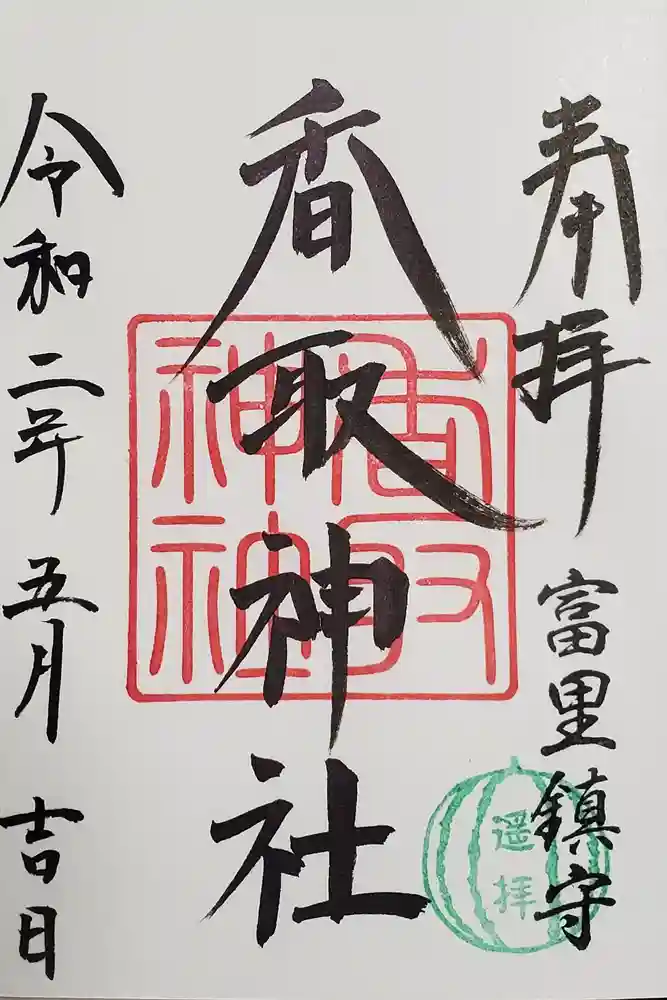 奉拝
富里鎮守
遥拝
香取神社
香取神社
令和二年五月吉日